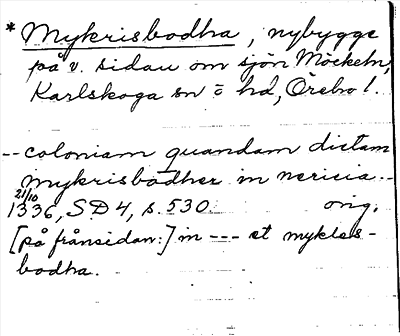 *Mykrisbodha, nybygge
på v. sidan om sjön Möckeln,
Karlskoga sn o hd, Örebro l.
-- coloniam quandam dictam
mykrisbodher in nericia --
21/10
1336, SD 4, s. 530. orig.
[på frånsidan:] in --- et mykles-
bodha.